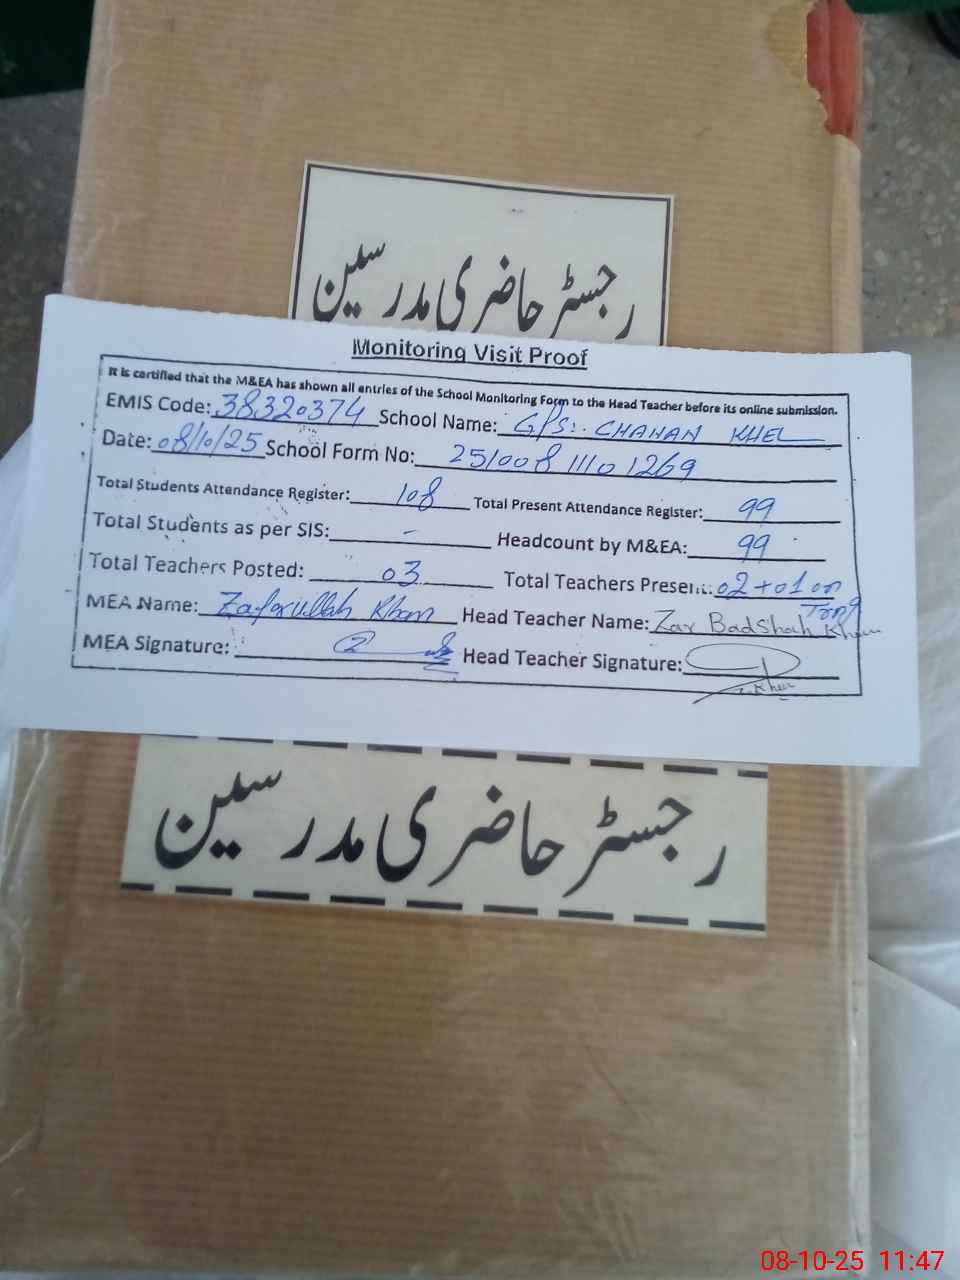 رجسٹر حاضری مدرسین
Monitoring Visit Proof
It is certified that the M&EA has shown all entries of the School Monitoring Form to the Head Teacher before its online submission.
EMIS Code: 38320374 School Name: GPS: CHANAN KHEL
Date: 08/10/25 School Form No: 251008111101269
Total Students Attendance Register: 108 Total Present Attendance Register: 99
Total Students as per SIS: - Headcount by M&EA: 99
Total Teachers Posted: 03 Total Teachers Present: 02+01 on
MEA Name: Zafarullah Khan Head Teacher Name: Zar Badshah Khan
MEA Signature: Head Teacher Signature:
رجسٹر حاضری مدرسین
08-10-25 11:47